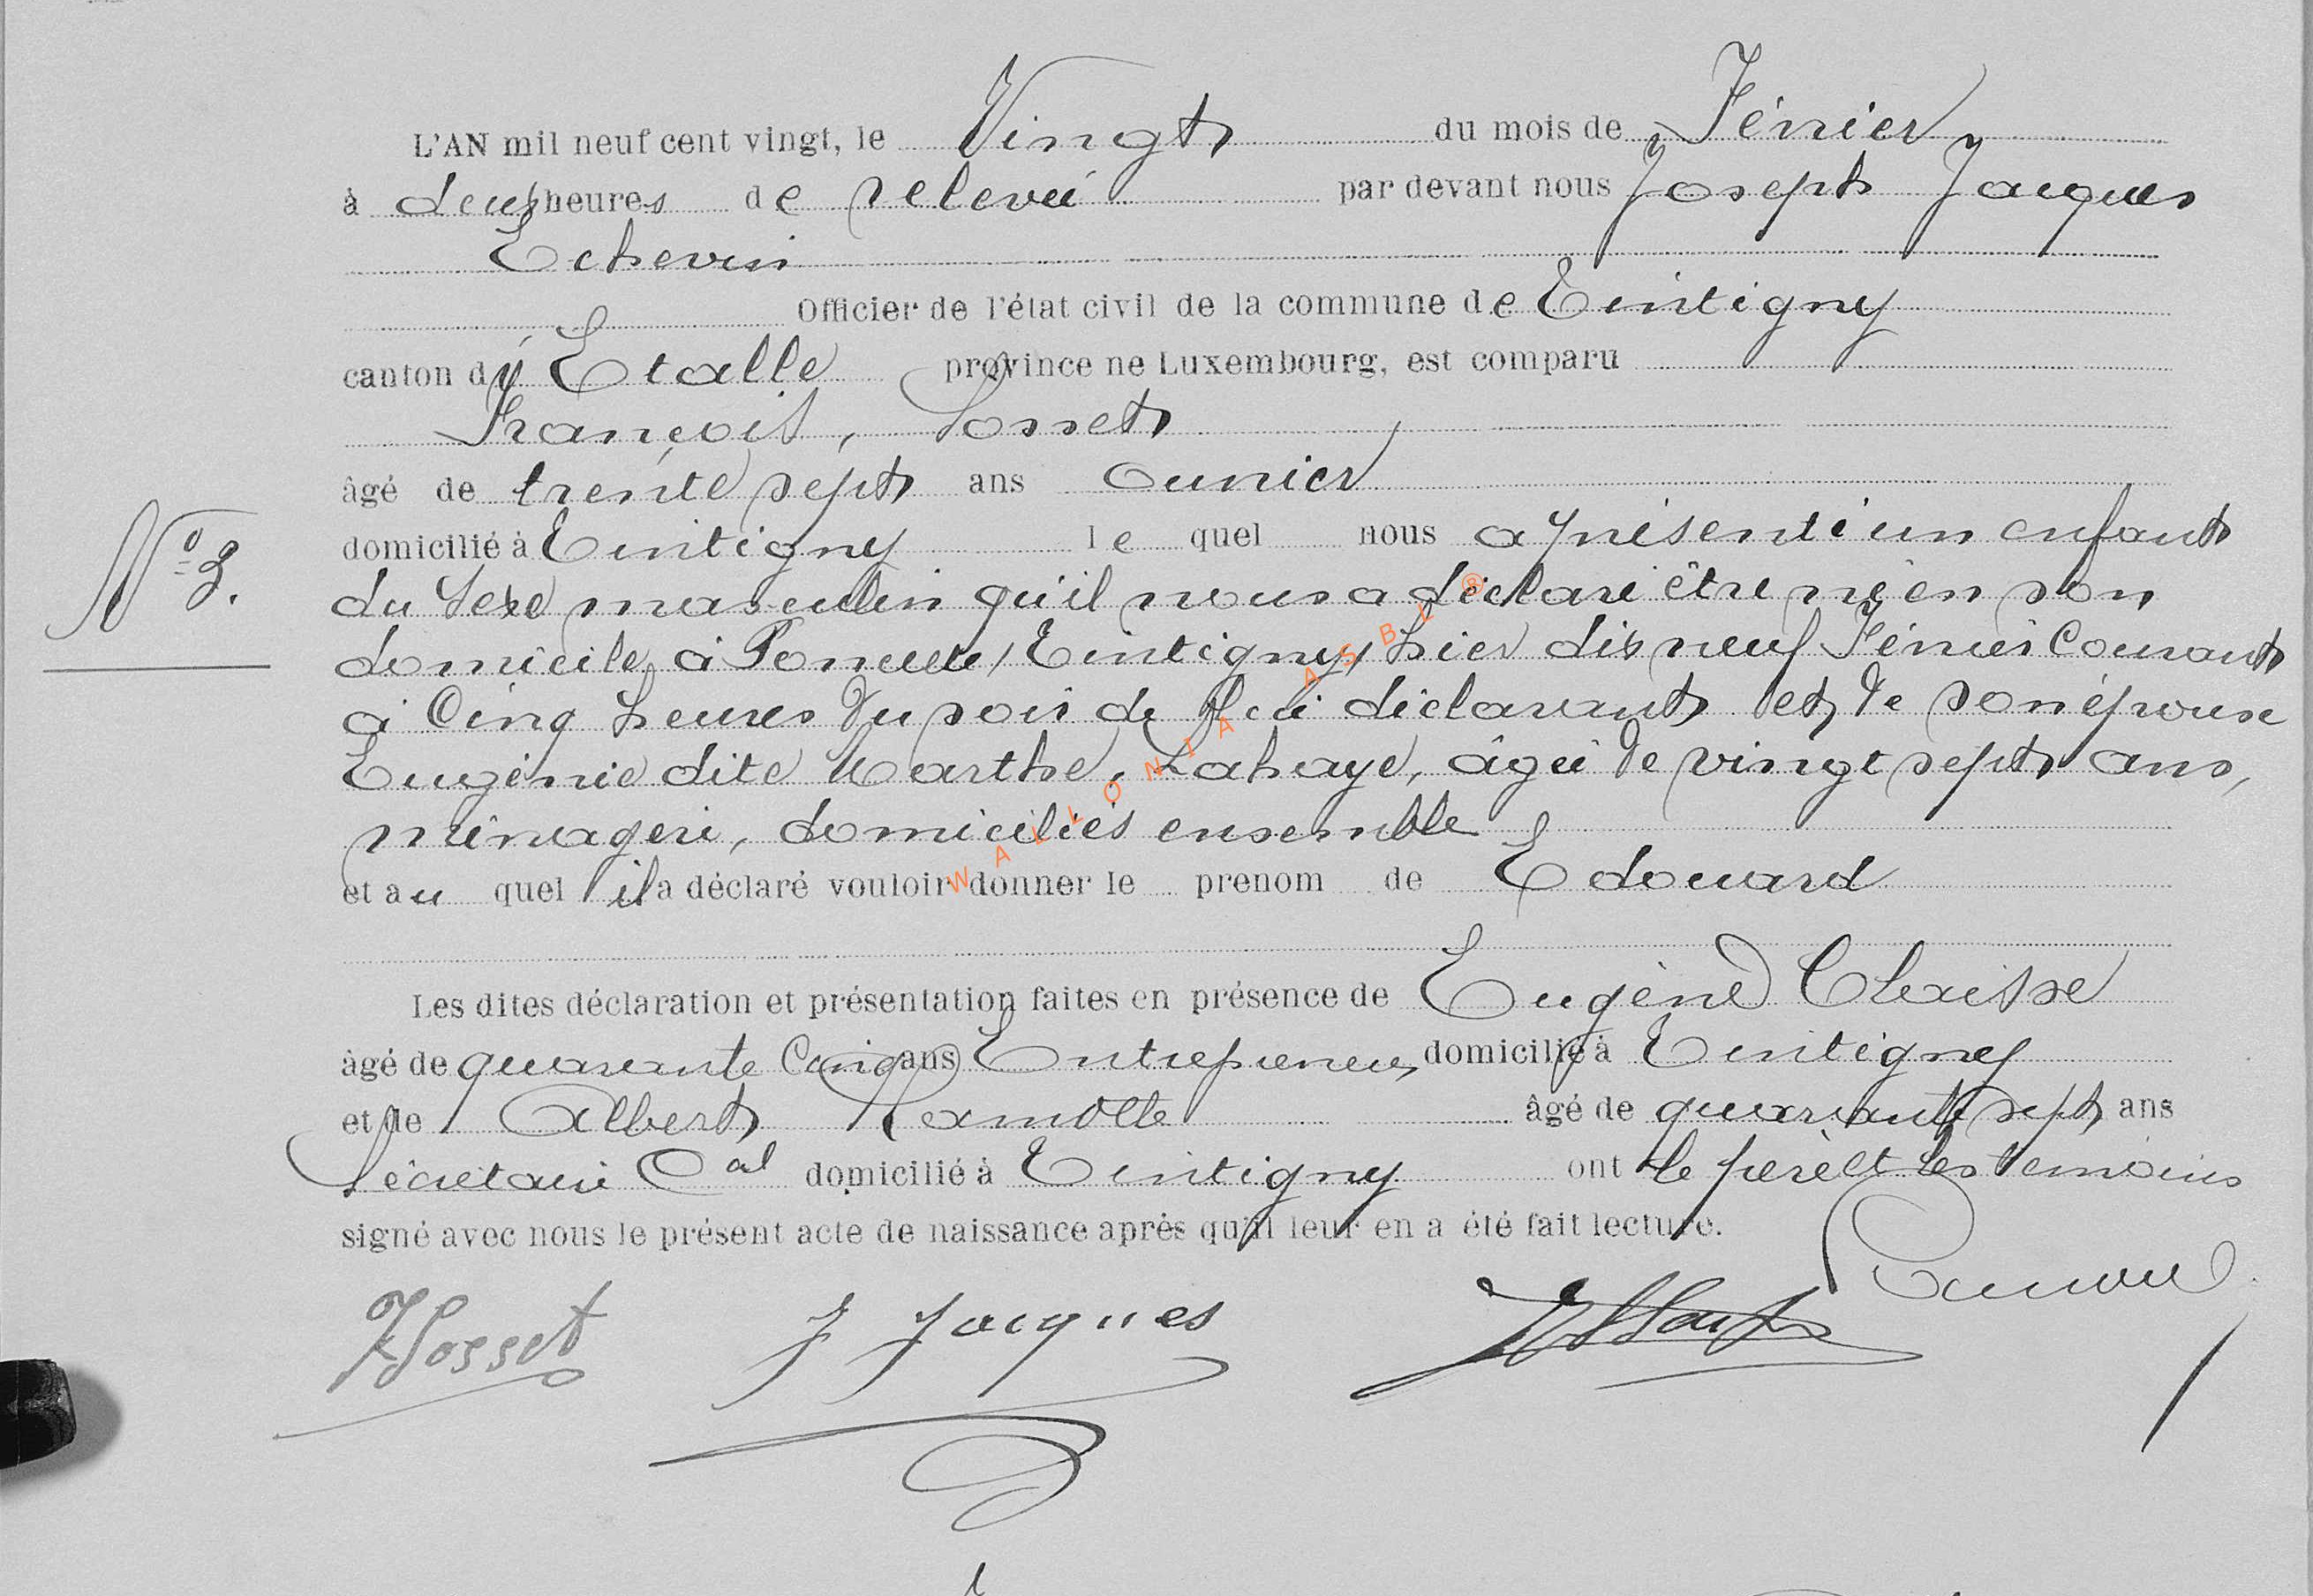 L'AN mil neuf cent vingt, le Vingt du mois de Février
à deux heures de relevée par devant nous Joseph Jacques
Echevin
Officier de l'état civil de la commune de Tintigny
canton d'Etalle province ne Luxembourg, est comparu
François, Sosset
âgé de trente sept ans ouvrier
domicilié à Tintigny le quel nous a présenté un enfant
N° 3.
du sexe masculin qu'il nous a déclaré être né en son
domicile à Poncelle, Tintigny, hier dix neuf Février Courant
à Cinq heures du soir de lui déclarant et de son épouse
Eugénie dite Marthe, Lahaye, âgée de vingt sept ans,
ménagère, domiciliés ensemble
et au quel il a déclaré vouloir donner le prenom de Edouard
Les dites déclaration et présentation faites en présence de Eugène Claisse
âgé de quarante Cinq ans Entrepreneur domicilié à Tintigny
et de Albert Lamotte âgé de quarante sept ans
Secrétaire Cal domicilié à Tintigny ont le père et les témoins
signé avec nous le présent acte de naissance après qu'il leur en a été fait lecture.
F Sosset J Jacques
WALLONIA ASBL ®